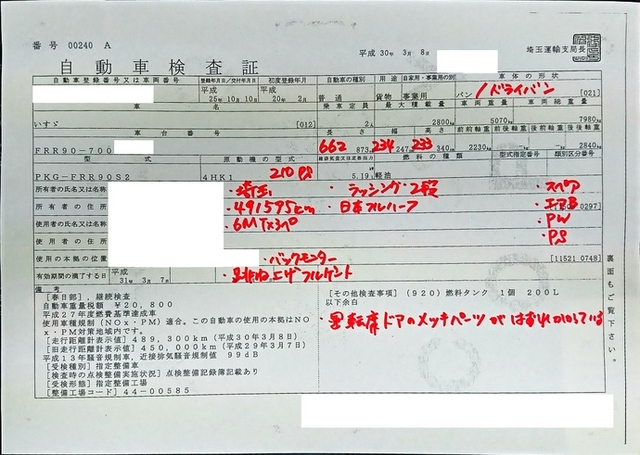 番号 00240 A
平成 30年 3月 8日
埼玉運輸支局長
自動車検査証
自動車登録番号又は車両番号 登録年月日/交付年月日 初度登録年月 自動車の種別 用途 自家用・事業用の別 車体の形状
平成 25年10月10日 平成 20年 2月 普通 貨物 事業用 バン /ドライバン [021]
車名 乗車定員 最大積載量 車両重量 車両総重量
いすゞ [012] 2人 2800kg 5070kg 7980kg
車台番号 長さ 幅 高さ 前前軸重 前後軸重 後前軸重 後後軸重
FRR90-700 662 234 233
873cm 247cm 340cm 2230kg -kg -kg 2840kg
型式 原動機の型式 燃料の種類 型式指定番号 類別区分番号
PKG-FRR90S2 4HK1 210PS 5.19L 軽油
所有者の氏名又は名称 ・埼玉 ・ラッシング2段 ・スペア
所有者の住所 ・491595km ・日本フルハーフ ・エアB 0297]
使用者の氏名又は名称 ・6MTx3P ・PW
使用者の住所 ・PS
使用の本拠の位置 ・バックモニター [11521 0748]
有効期間の満了する日 平成 31年 3月 7日
備考
[春日部],継続検査
自動車重量税額 ¥20,800
平成27年度燃費基準達成車
使用車種規制(NOx・PM)適合。この自動車の使用の本拠はNO
x・PM対策地域内です。
[走行距離計表示値] 489,300km(平成30年3月8日)
[旧走行距離計表示値] 450,000km(平成29年3月7日)
平成13年騒音規制車,近接排気騒音規制値 99dB
[受検種別] 指定整備車
[検査時の点検整備実施状況] 点検整備記録簿記載あり
[受検形態] 指定整備工場
[整備工場コード] 44-00585
[その他検査事項] (920)燃料タンク 1個 200L
以下余白
・運転席ドアのメッキパーツがはずれかかっている
裏面もご覧下さい。